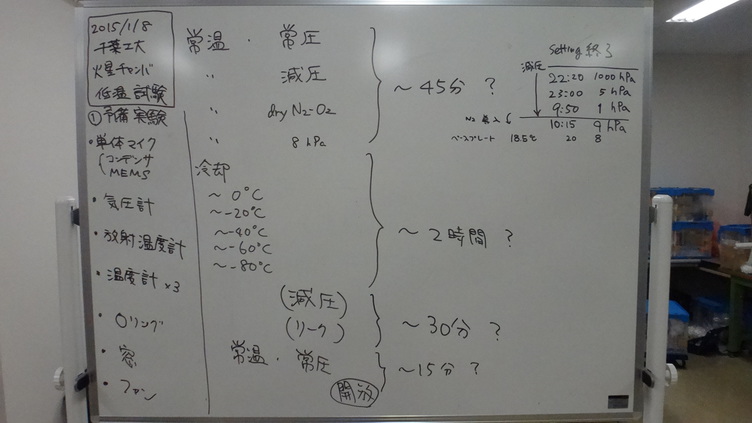 2015/1/8
千葉工大
火星チャンバ
低温試験
①予備実験
・単体マイク
(コンデンサ
MEMS
・気圧計
・放射温度計
・温度計 ×3
・Oリング
・窓
・ファン
常温・常圧
〃 減圧
〃 dry N2-O2
〃 8 hPa
～45分 ?
冷却
～ 0℃
～-20℃
～-40℃
～-60℃
～-80℃
～2時間 ?
(減圧)
(リーク)
～30分 ?
常温・常圧
～15分 ?
開放
Setting 終了
減圧
22:20 1000 hPa
23:00 5 hPa
9:50 1 hPa
10:15 9 hPa
ベースプレート 18.5℃ 20 8